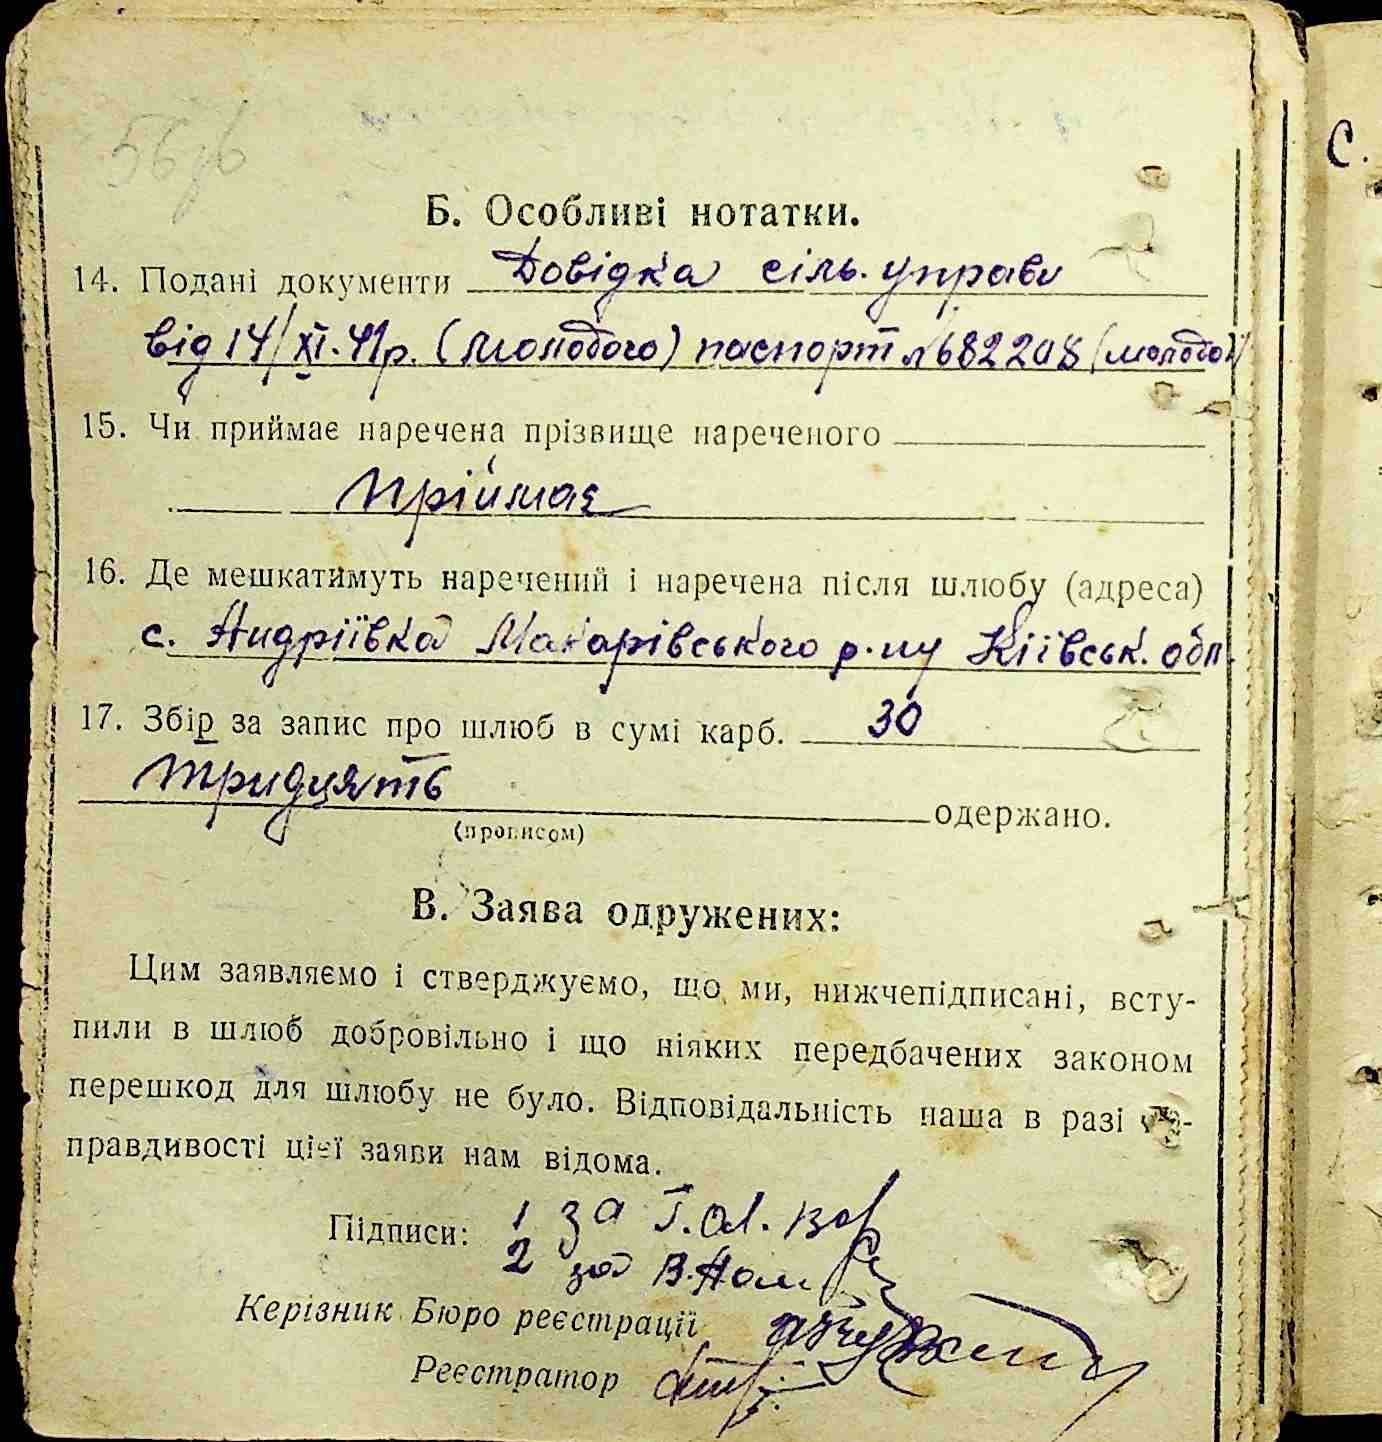 56зв
Б. Особливі нотатки.
14. Подані документи Довідка сіль. управи
від 14/XI.41р. (молодого) паспорт №682208 (молодої)
15. Чи приймає наречена прізвище нареченого
Пріймає
16. Де мешкатимуть наречений і наречена після шлюбу (адреса)
с. Андріївка Макарівського р-ну Київськ. обл.
17. Збір за запис про шлюб в сумі карб. 30
тридцять одержано.
(прописом)
В. Заява одружених:
Цим заявляємо і стверджуємо, що ми, нижчепідписані, всту-
пили в шлюб добровільно і що ніяких передбачених законом
перешкод для шлюбу не було. Відповідальність наша в разі не-
правдивості цієї заяви нам відома.
Підписи: 1 за
2 за
Керізник Бюро реєстрації
Реєстратор
С.